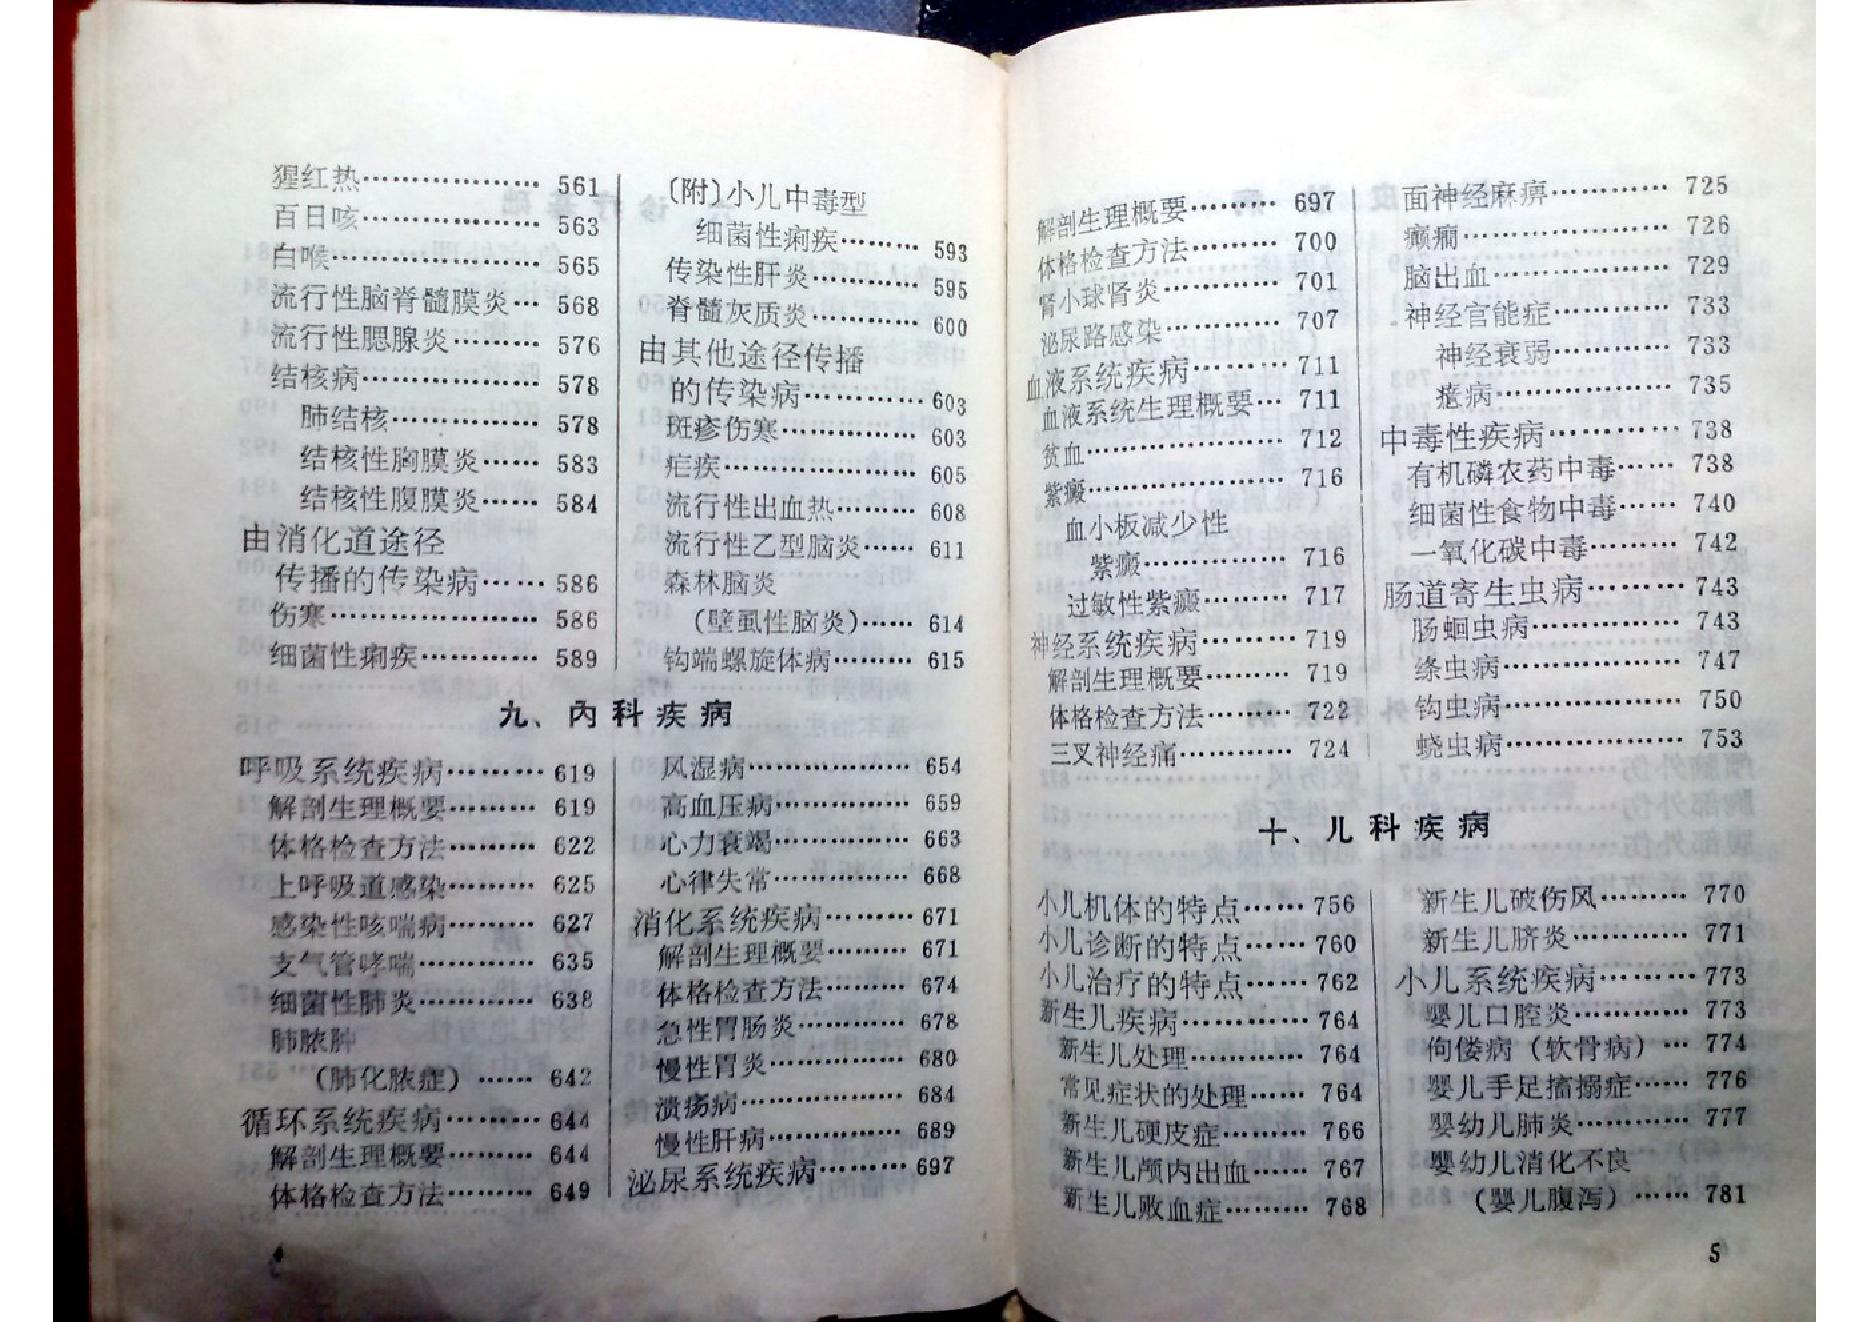 猩红热……………… 561
百日咳……………… 563
白喉………………… 565
流行性脑脊髓膜炎… 568
流行性腮腺炎……… 576
结核病……………… 578
肺结核…………… 578
结核性胸膜炎…… 583
结核性腹膜炎…… 584
由消化道途径
传播的传染病…… 586
伤寒………………… 586
细菌性痢疾………… 589
〔附〕小儿中毒型
细菌性痢疾……… 593
传染性肝炎………… 595
脊髓灰质炎………… 600
由其他途径传播
的传染病………… 603
斑疹伤寒…………… 603
疟疾………………… 605
流行性出血热……… 608
流行性乙型脑炎…… 611
森林脑炎
(壁虱性脑炎)…… 614
钩端螺旋体病……… 615
九、内科疾病
呼吸系统疾病……… 619
解剖生理概要……… 619
体格检查方法……… 622
上呼吸道感染……… 625
感染性咳喘病……… 627
支气管哮喘………… 635
细菌性肺炎………… 638
肺脓肿
(肺化脓症) …… 642
循环系统疾病……… 644
解剖生理概要……… 644
体格检查方法……… 649
风湿病……………… 654
高血压病…………… 659
心力衰竭…………… 663
心律失常…………… 668
消化系统疾病……… 671
解剖生理概要……… 671
体格检查方法……… 674
急性胃肠炎………… 678
慢性胃炎…………… 680
溃疡病……………… 684
慢性肝病…………… 689
泌尿系统疾病……… 697
4
解剖生理概要……… 697
体格检查方法……… 700
肾小球肾炎………… 701
泌尿路感染………… 707
血液系统疾病……… 711
血液系统生理概要… 711
贫血………………… 712
紫癜………………… 716
血小板减少性
紫癜…………… 716
过敏性紫癜……… 717
神经系统疾病……… 719
解剖生理概要……… 719
体格检查方法……… 722
三叉神经痛………… 724
面神经麻痹………… 725
癫痫………………… 726
脑出血……………… 729
神经官能症………… 733
神经衰弱………… 733
癔病……………… 735
中毒性疾病………… 738
有机磷农药中毒…… 738
细菌性食物中毒…… 740
一氧化碳中毒……… 742
肠道寄生虫病……… 743
肠蛔虫病…………… 743
绦虫病……………… 747
钩虫病……………… 750
蛲虫病……………… 753
十、儿科疾病
小儿机体的特点…… 756
小儿诊断的特点…… 760
小儿治疗的特点…… 762
新生儿疾病………… 764
新生儿处理………… 764
常见症状的处理…… 764
新生儿硬皮症……… 766
新生儿颅内出血…… 767
新生儿败血症……… 768
新生儿破伤风……… 770
新生儿脐炎………… 771
小儿系统疾病……… 773
婴儿口腔炎………… 773
佝偻病(软骨病) … 774
婴儿手足搐搦症…… 776
婴幼儿肺炎………… 777
婴幼儿消化不良
(婴儿腹泻) …… 781
5